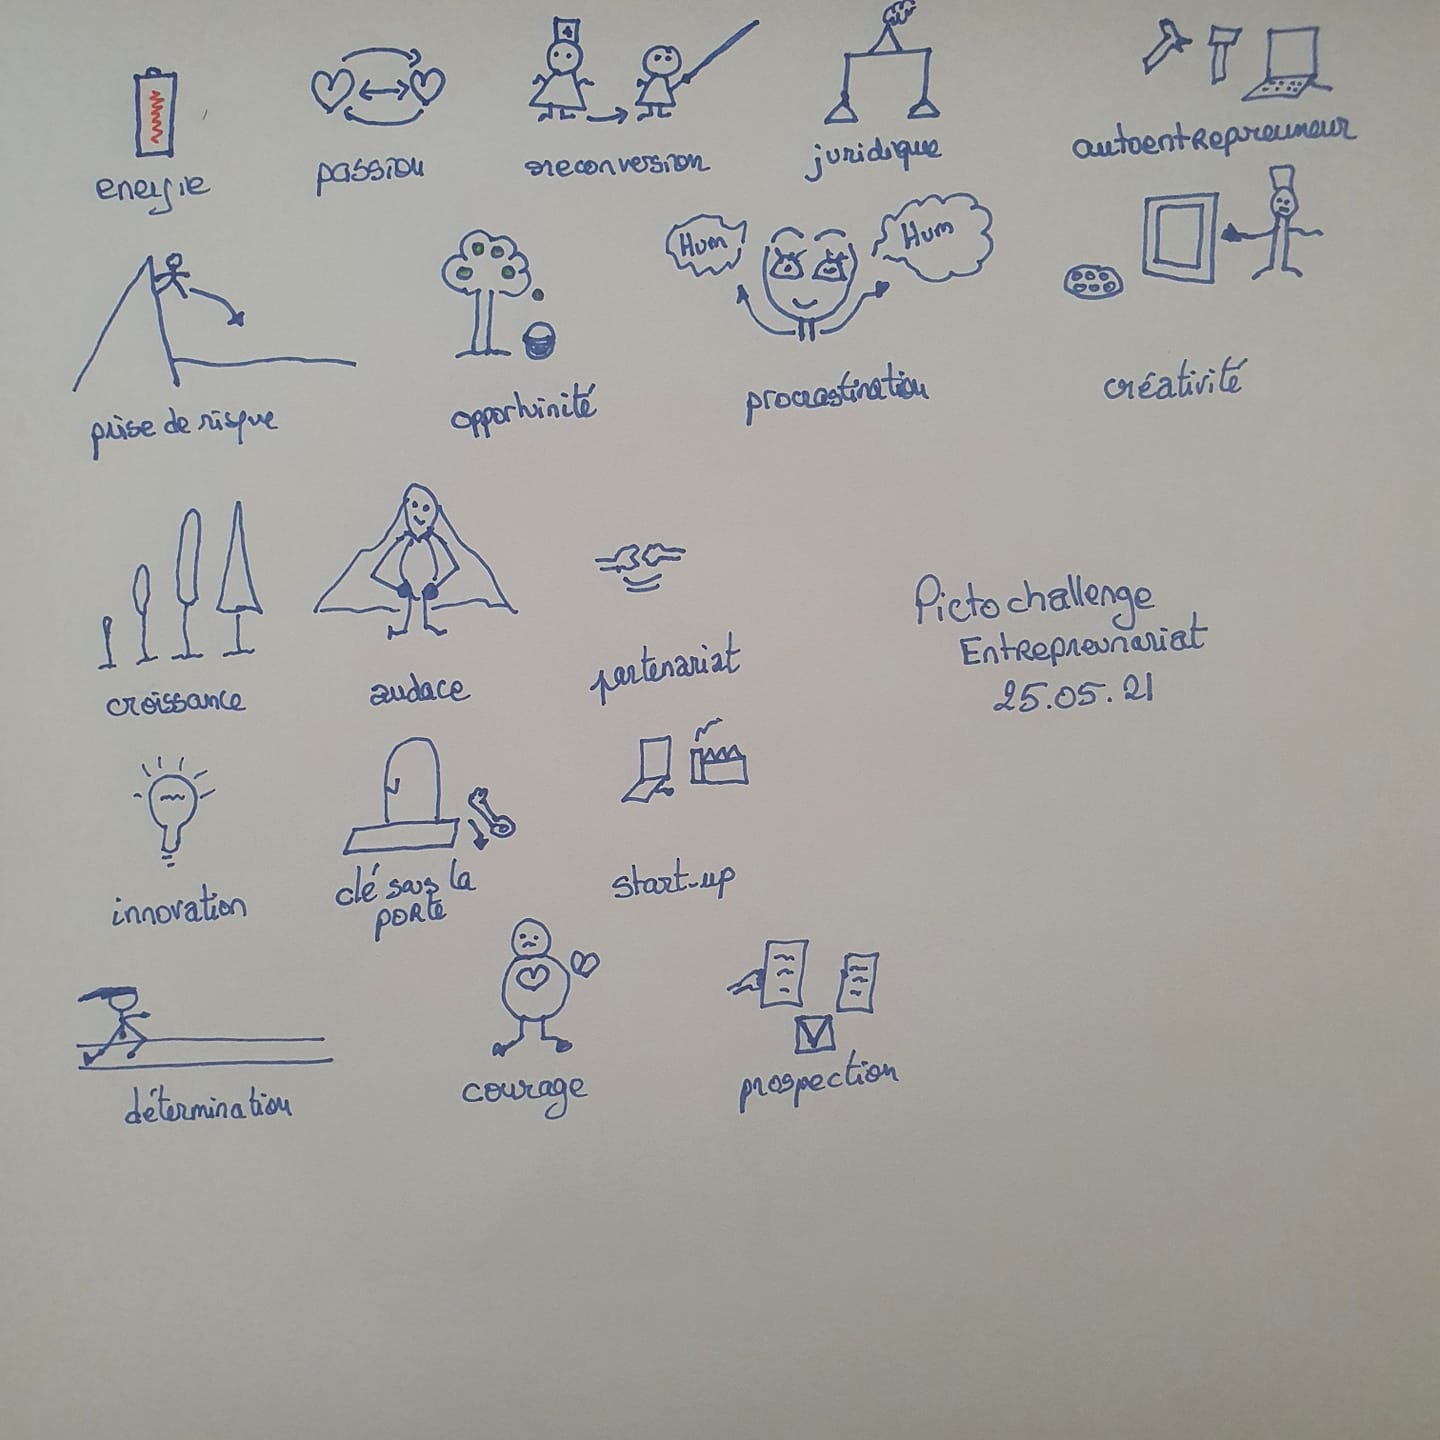 energie
passion
reconversion
juridique
autoentrepreuneur
Hum
Hum
prise de risque
opportuinité
procrastination
créativité
croissance
audace
partenariat
Picto challenge
Entrepreunariat
25.05.21
innovation
clé sous la
porte
start-up
détermination
courage
prospection